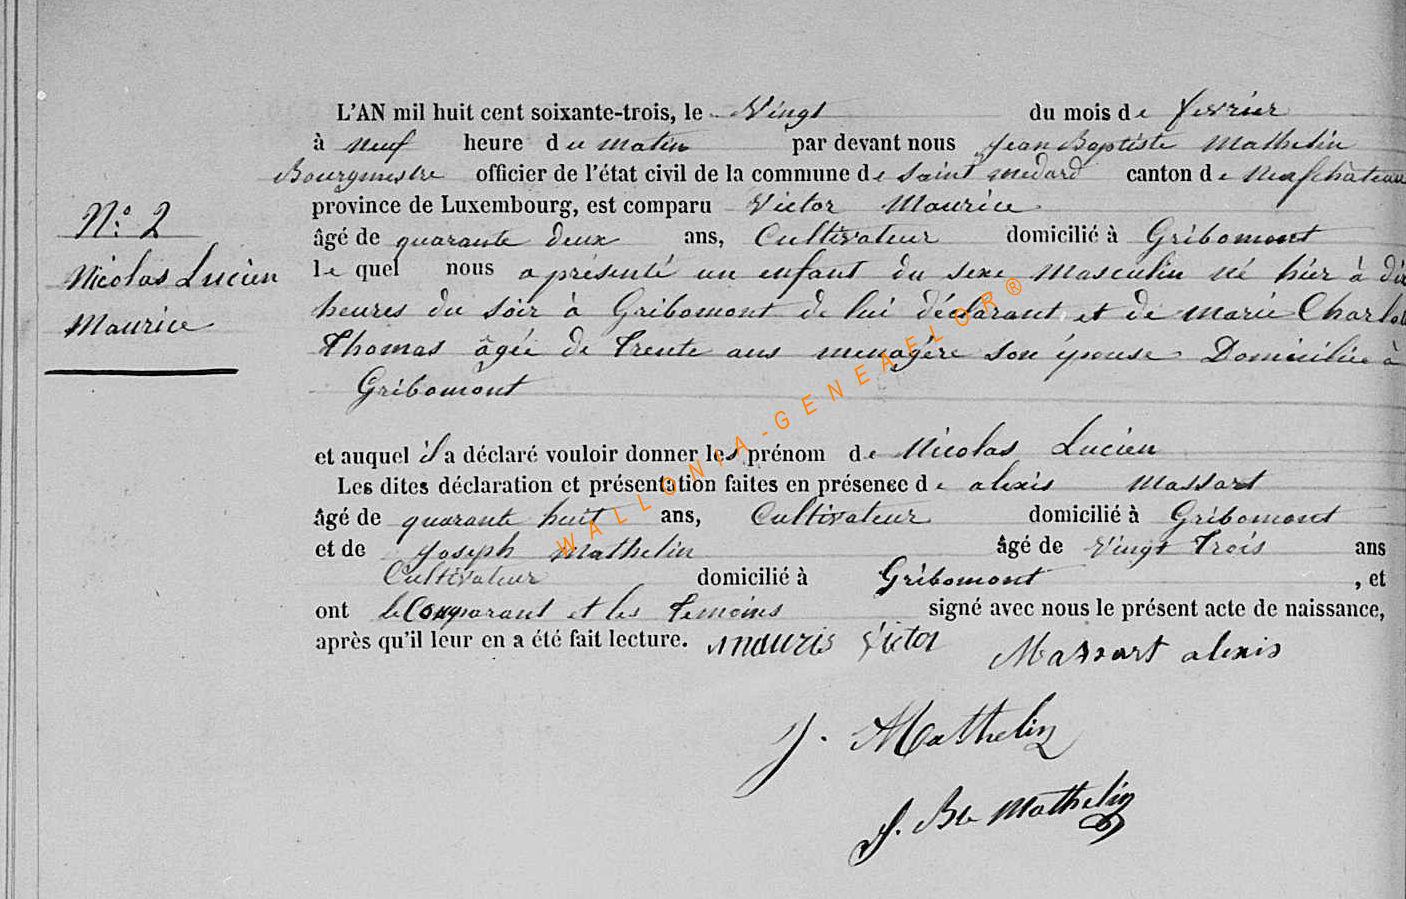 L'AN mil huit cent soixante-trois, le Vingt du mois de fevrier
à neuf heure du matin par devant nous Jean Baptiste Mathelin
Bourgmestre officier de l'état civil de la commune de Saint medard canton de Neufchâteau
province de Luxembourg, est comparu Victor Maurice
âgé de quarante deux ans, Cultivateur domicilié à Gribomont
le quel nous a présenté un enfant du sexe masculin né hier à dix
heures du soir à Gribomont de lui déclarant et de marie Charlot
Thomas âgée de trente ans menagère son épouse Domiciliée à
Gribomont
et auquel il a déclaré vouloir donner les prénom de Nicolas Lucien
Les dites déclaration et présentation faites en présence de alexis Massart
âgé de quarante huit ans, Cultivateur domicilié à Gribomont
et de Joseph Mathelin âgé de Vingt Trois ans
Cultivateur domicilié à Gribomont, et
ont le Comparant et les temoins signé avec nous le présent acte de naissance,
après qu'il leur en a été fait lecture. Mauris Victor Massart alexis
J. Mathelin
J. Bte Mathelin
N.° 2
Nicolas Lucien
Maurice
WALLONIA-GENEAELOR®